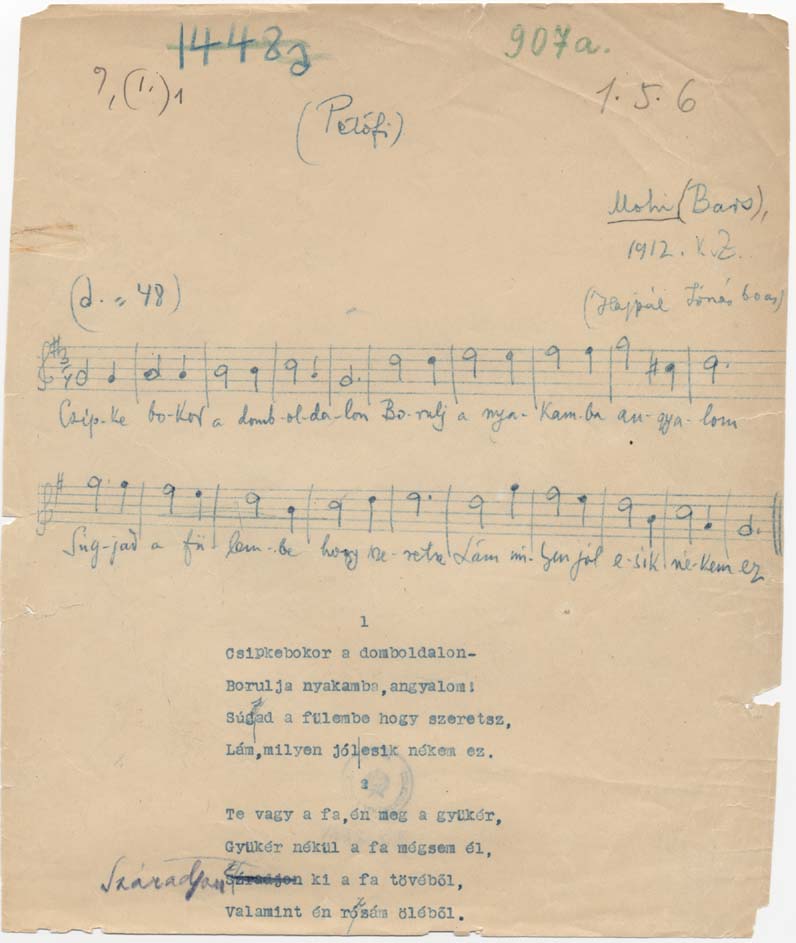 1448a 907a.
9,(1.)1 1.5.6
(Petőfi)
Mohi (Bars),
1912. K.Z.
(d. = 48)
Csip-ke bo-kor a domb-ol-da-lon Bo-rulj a nya-kam-ba an-gya-lom
Súg-jad a fü-lem-be hogy sze-retsz Lám mi-lyen jól e-sik né-kem ez
1
Csipkebokor a domboldalon-
Borulja nyakamba,angyalom!
Súgad a fülembe hogy szeretsz,
Lám,milyen jólesik nékem ez.
2
Te vagy a fa,én meg a gyükér,
Gyükér nékül a fa mégsem él,
Száradjon Száradjon ki a fa tövéből,
Valamint én rózsám öléből.